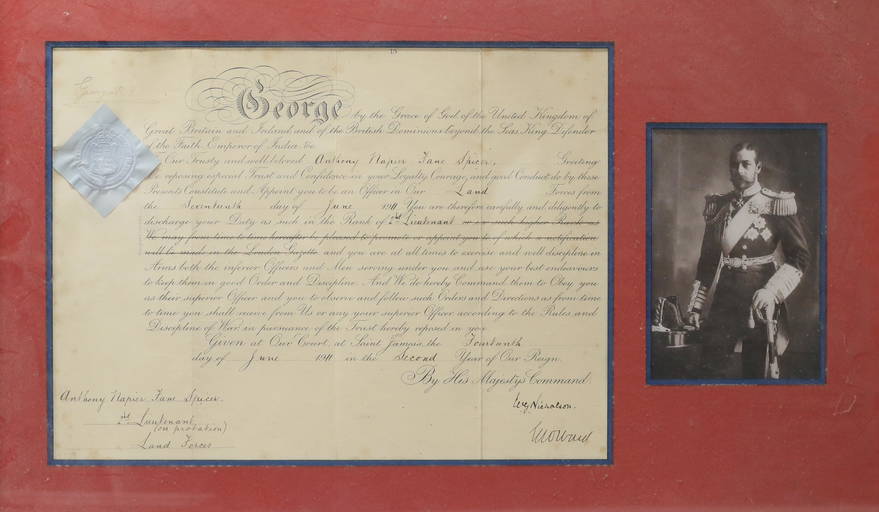 15
George by the Grace of God, of the United Kingdom of
Great Britain and Ireland and of the British Dominions beyond the Seas King Defender
of the Faith, Emperor of India &c
Our Trusty and well beloved Anthony Napier Fane Spicer, Greeting
We reposing especial Trust and Confidence in your Loyalty Courage, and good Conduct, do by these
Presents Constitute and Appoint you to be an Officer in Our Land Forces from
the Seventeenth day of June 1911 You are therefore carefully and diligently to
discharge your Duty as such in the Rank of 2nd Lieutenant or in such higher Rank as
We may from time to time hereafter be pleased to promote or appoint you to of which a notification
will be made in the London Gazette and you are at all times to exercise and well discipline in
Arms both the inferior Officers and Men serving under you and use your best endeavours
to keep them in good Order and Discipline. And We do hereby Command them to Obey you
as their superior Officer and you to observe and follow such Orders and Directions as from time
to time you shall receive from Us or any your superior Officer according to the Rules and
Discipline of War in pursuance of the Trust hereby reposed in you
Given at Our Court, at Saint James's, the Fourteenth
day of June 1911 in the Second Year of Our Reign
By His Majesty's Command
Anthony Napier Fane Spicer.
2nd Lieutenant
(on probation)
Land Forces
Nicholson.
EWDWard